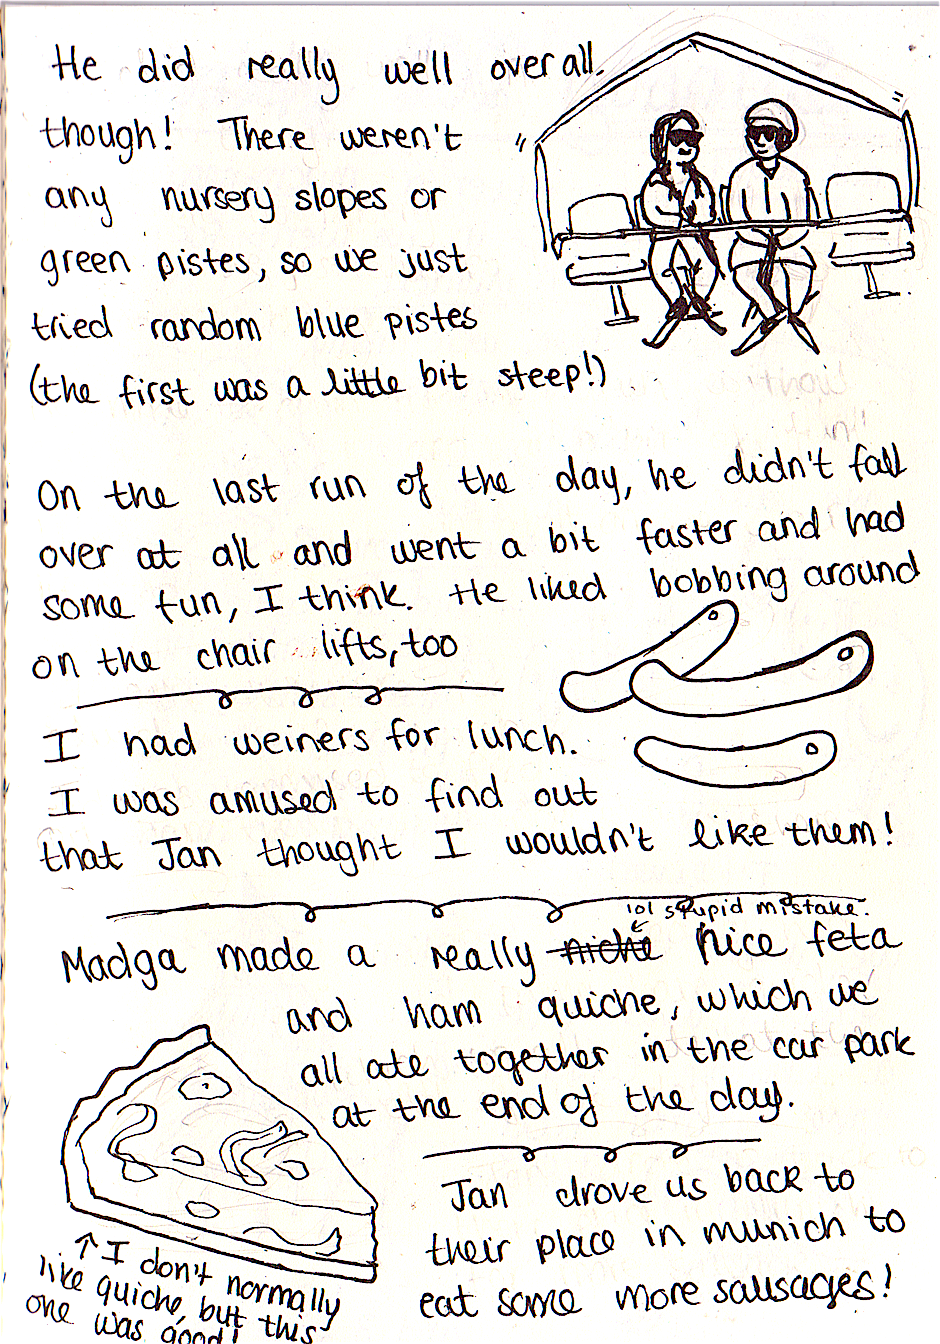 He did really well overall.
though! There weren't
any nursery slopes or
green pistes, so we just
tried random blue pistes
(the first was a little bit steep!)
On the last run of the day, he didn't fall
over at all and went a bit faster and had
some fun, I think. He liked bobbing around
on the chair lifts, too
I had weiners for lunch.
I was amused to find out
that Jan thought I wouldn't like them!
lol stupid mistake.
Madga made a really niche nice feta
and ham quiche, which we
all ate together in the car park
at the end of the day.
Jan drove us back to
their place in munich to
eat some more sausages!
↑ I don't normally
like quiche, but this
one was good!